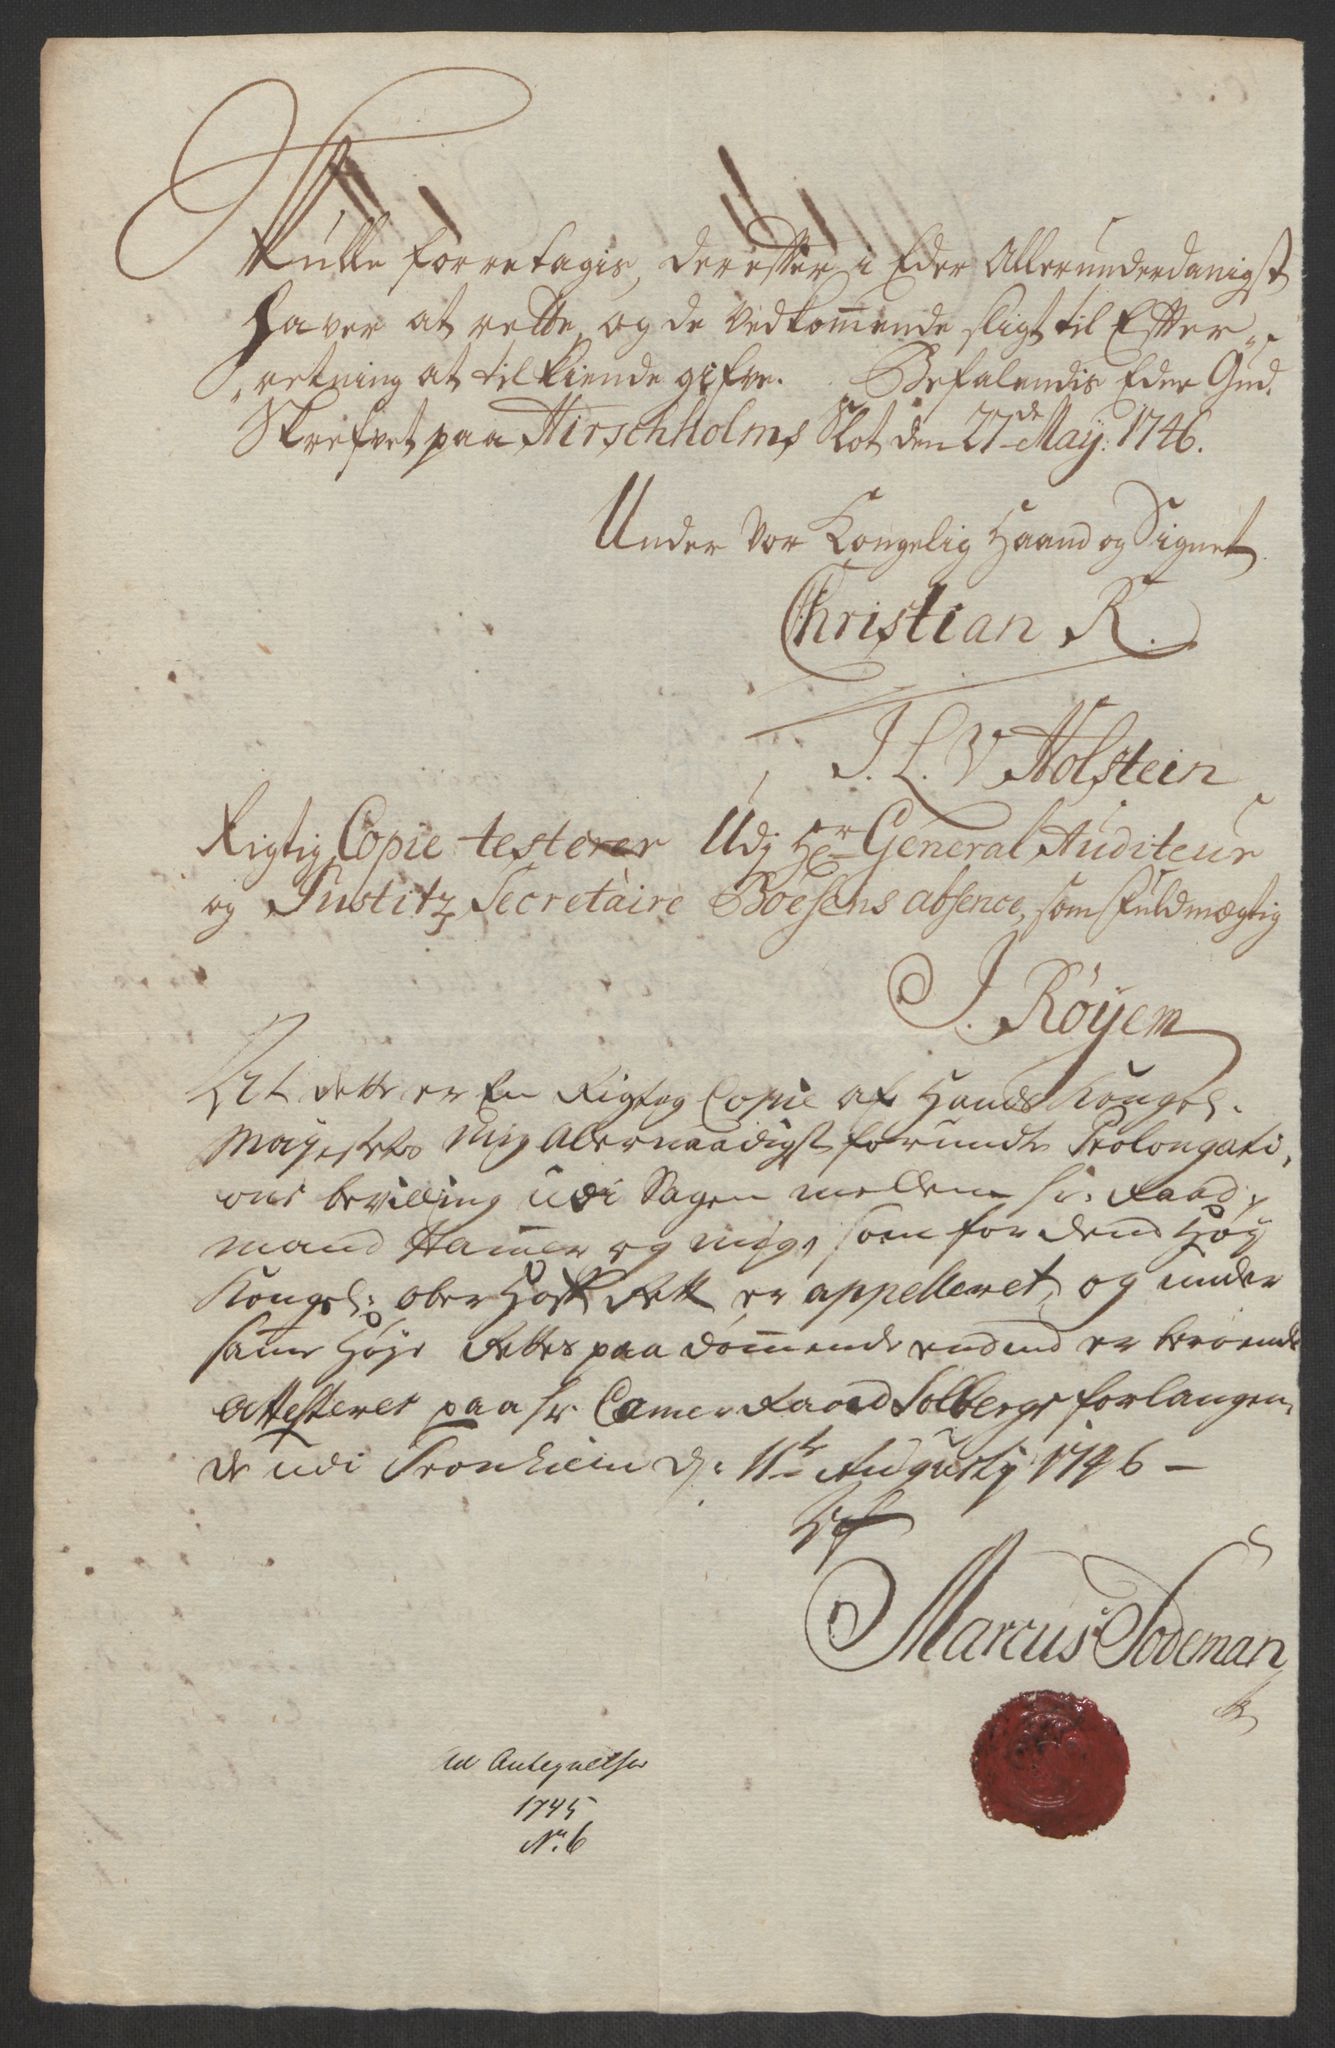 Skulle forretagis, derefter i Eder Allerunderdanigst
haver at rette, og de Vedkom̄ende sligt til Efter
retning at tilkiende gifve. Befalendis Eder Gud.
Skrefvet paa Hirschholms Slot den 27de May: 1746.
Under Vor Kongelig Haand og Signet
Christian R.
J. L. V Holstein
Rigtig Copie testerer Udj Hr General Auditeur
og Justitz Secretaire Boesens absence, som Fuldmægtig
J. Röyem
At dette er En Rigtig Copie af Hands Kongel:
Mayestets Mig Allernaadigst forundte Prolongati,
ons bevilling udi Sagen mellem Hr: Raad,
mand Ham̄er og mig, som for dend Høy
Kongel: ober Hoff Rett er appelleret, og under
sam̄e Høye Rettes paa dom̄ende endnu er beroende
Attesteres paa Hr Camer Raad Solbergs forlangen,
de udi Tronhiem d: 11te Augusty 1746 –
Marcus Todeman
til Antegnelser
1745
No. 6